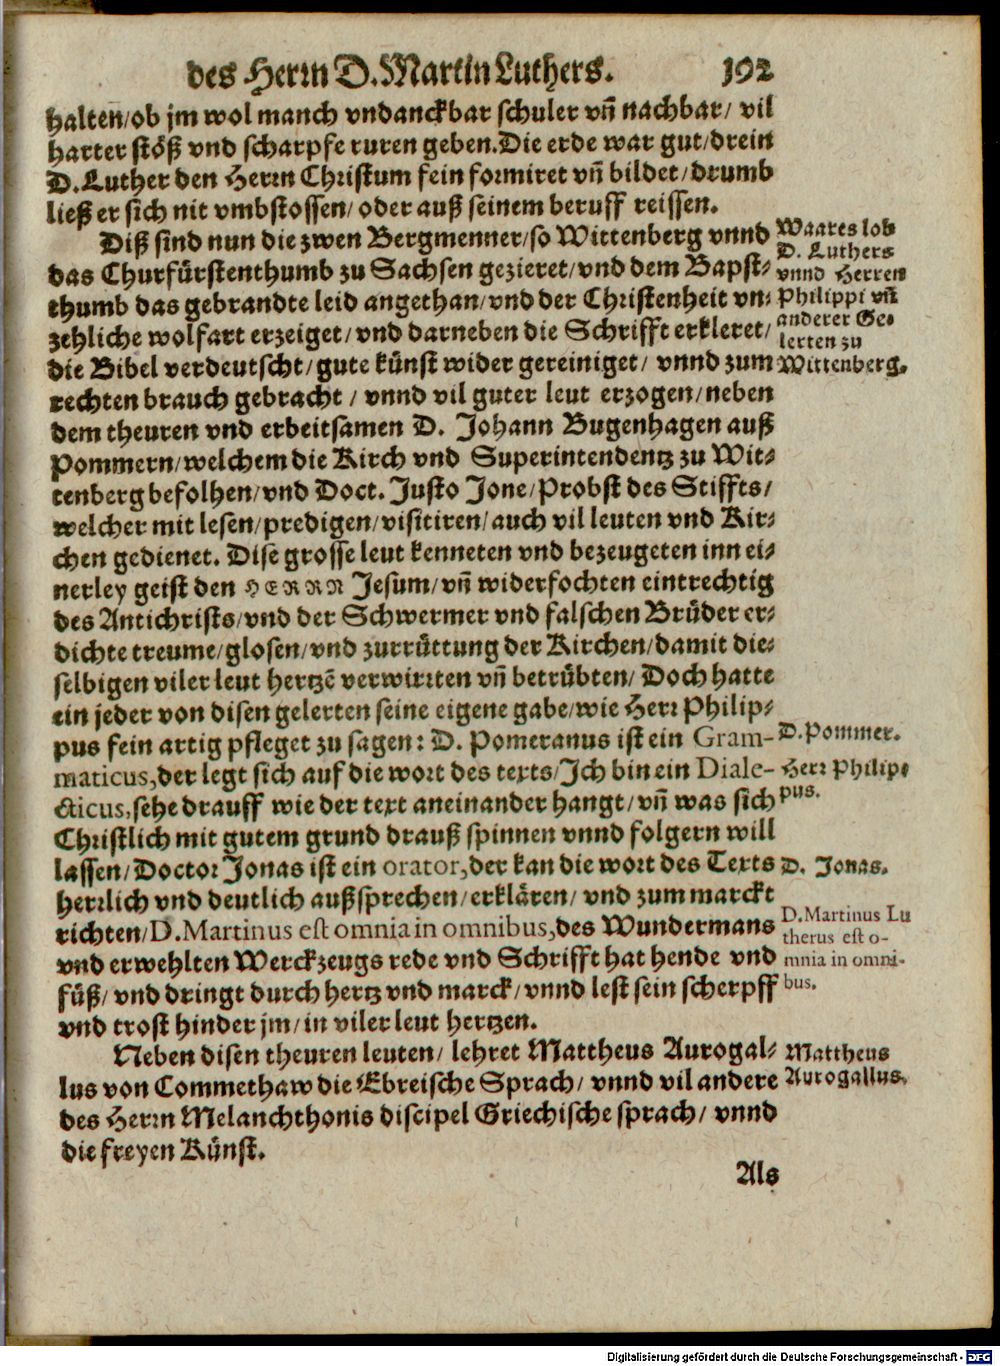 des Herrn D. Martin Luthers. 192
halten/ob jm wol manch vndanckbar schuler vn̄ nachbar/ vil
harter stöß vnd scharpfe ruren geben. Die erde war gut/drein
D. Luther den Herrn Christum fein formiret vn̄ bildet/drumb
ließ er sich nit vmbstossen/ oder auß seinem beruff reissen.
Diß sind nun die zwen Bergmenner/so Wittenberg vnnd
das Churfürstenthumb zu Sachsen gezieret/vnd dem Bapst⸗
thumb das gebrandte leid angethan/vnd der Christenheit vn⸗
zehliche wolfart erzeiget/vnd darneben die Schrifft erkleret/
die Bibel verdeutscht/gute künst wider gereiniget/ vnnd zum
rechten brauch gebracht / vnnd vil guter leut erzogen/neben
dem theuren vnd erbeitsamen D. Johann Bugenhagen auß
Pommern/welchem die Kirch vnd Superintendentz zu Wit⸗
tenberg befolhen/vnd Doct. Justo Jone/Probst des Stiffts/
welcher mit lesen/predigen/visitiren/auch vil leuten vnd Kir⸗
chen gedienet. Dise grosse leut kenneten vnd bezeugeten inn ei⸗
nerley geist den HERRN Jesum/vn̄ widerfochten eintrechtig
des Antichrists/vnd der Schwermer vnd falschen Brüder er⸗
dichte treume/glosen/vnd zurrüttung der Kirchen/damit die⸗
selbigen viler leut hertzē verwirrten vn̄ betrübten/ Doch hatte
ein jeder von disen gelerten seine eigene gabe/wie Herr Philip⸗
pus fein artig pfleget zu sagen: D. Pomeranus ist ein Gram-
maticus, der legt sich auf die wort des texts/Ich bin ein Diale-
cticus, sehe drauff wie der text aneinander hangt/vn̄ was sich
Christlich mit gutem grund drauß spinnen vnnd folgern will
lassen/Doctor Jonas ist ein orator, der kan die wort des Texts
herrlich vnd deutlich außsprechen/erklären/ vnd zum marckt
richten/D. Martinus est omnia in omnibus, des Wundermans
vnd erwehlten Werckzeugs rede vnd Schrifft hat hende vnd
füß/ vnd dringt durch hertz vnd marck/vnnd lest sein scherpff
vnd trost hinder jm/in viler leut hertzen.
Neben disen theuren leuten/ lehret Mattheus Aurogal⸗
lus von Commethaw die Ebreische Sprach/ vnnd vil andere
des Herrn Melanchthonis discipel Griechische sprach/ vnnd
die freyen Künst.
Als
Waares lob
D. Luthers
vnnd Herren
Philippi vn̄
anderer Ge⸗
lerten zu
Wittenberg.
D. Pommer.
Herr Philip⸗
pus.
D. Jonas.
D. Martinus Lu
therus est o-
mnia in omni-
bus.
Mattheus
Aurogallus.
Digitalisierung gefördert durch die Deutsche Forschungsgemeinschaft - DFG